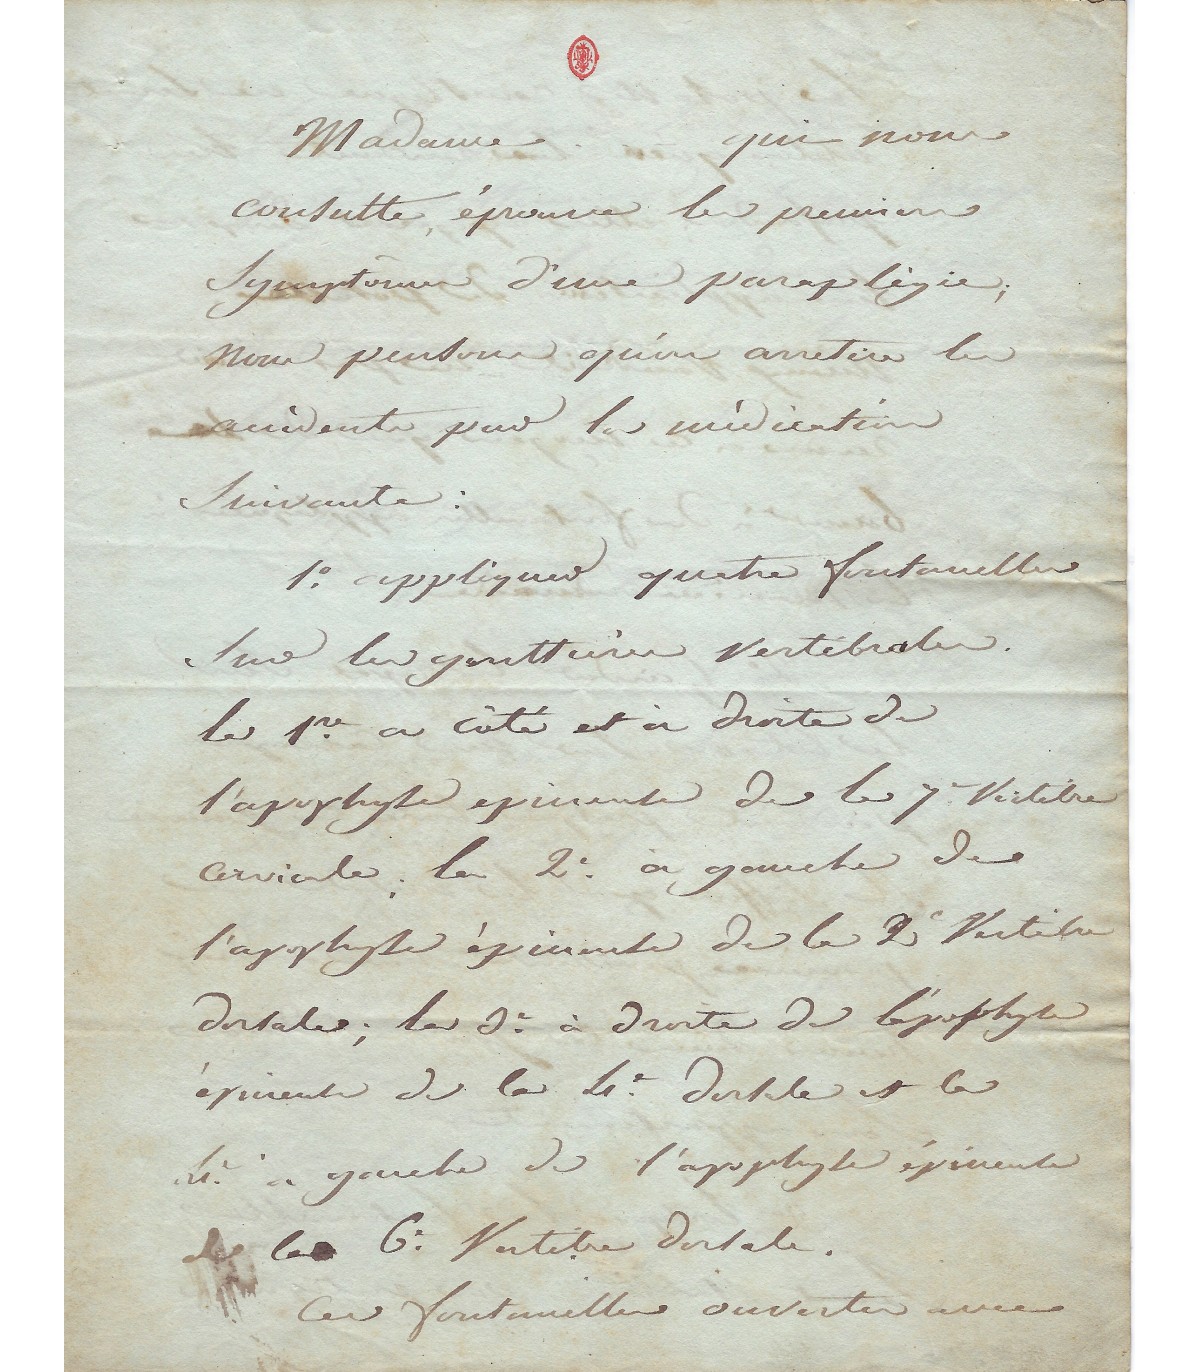 Madame qui nous
consulte, éprouve les premiers
symptômes d'une paraplégie;
nous pensons qu'on arretera les
accidents par la médication
suivante :
1° appliquer quatre fontanelles
sur les gouttières vertébrales.
la 1re a côté et à droite de
l'apophyse epineuse de la 7e Vertèbre
cervicale; la 2e à gauche de
l'apophyse épineuse de la 2e Vertèbre
dorsale; la 3e à droite de l'apophyse
épineuse de la 4e dorsale et la
4e a gauche de l'apophyse épineuse
de la 6e Vertèbre dorsale.
Ces fontanelles ouvertes avec